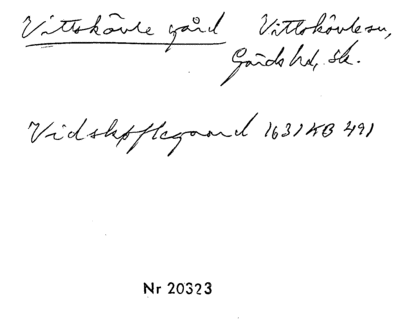 Vittskövle gård Vittskövle sn,
Gärds hd, Sk.
Vidskøfflegaard 1631 KB 491
Nr 20323